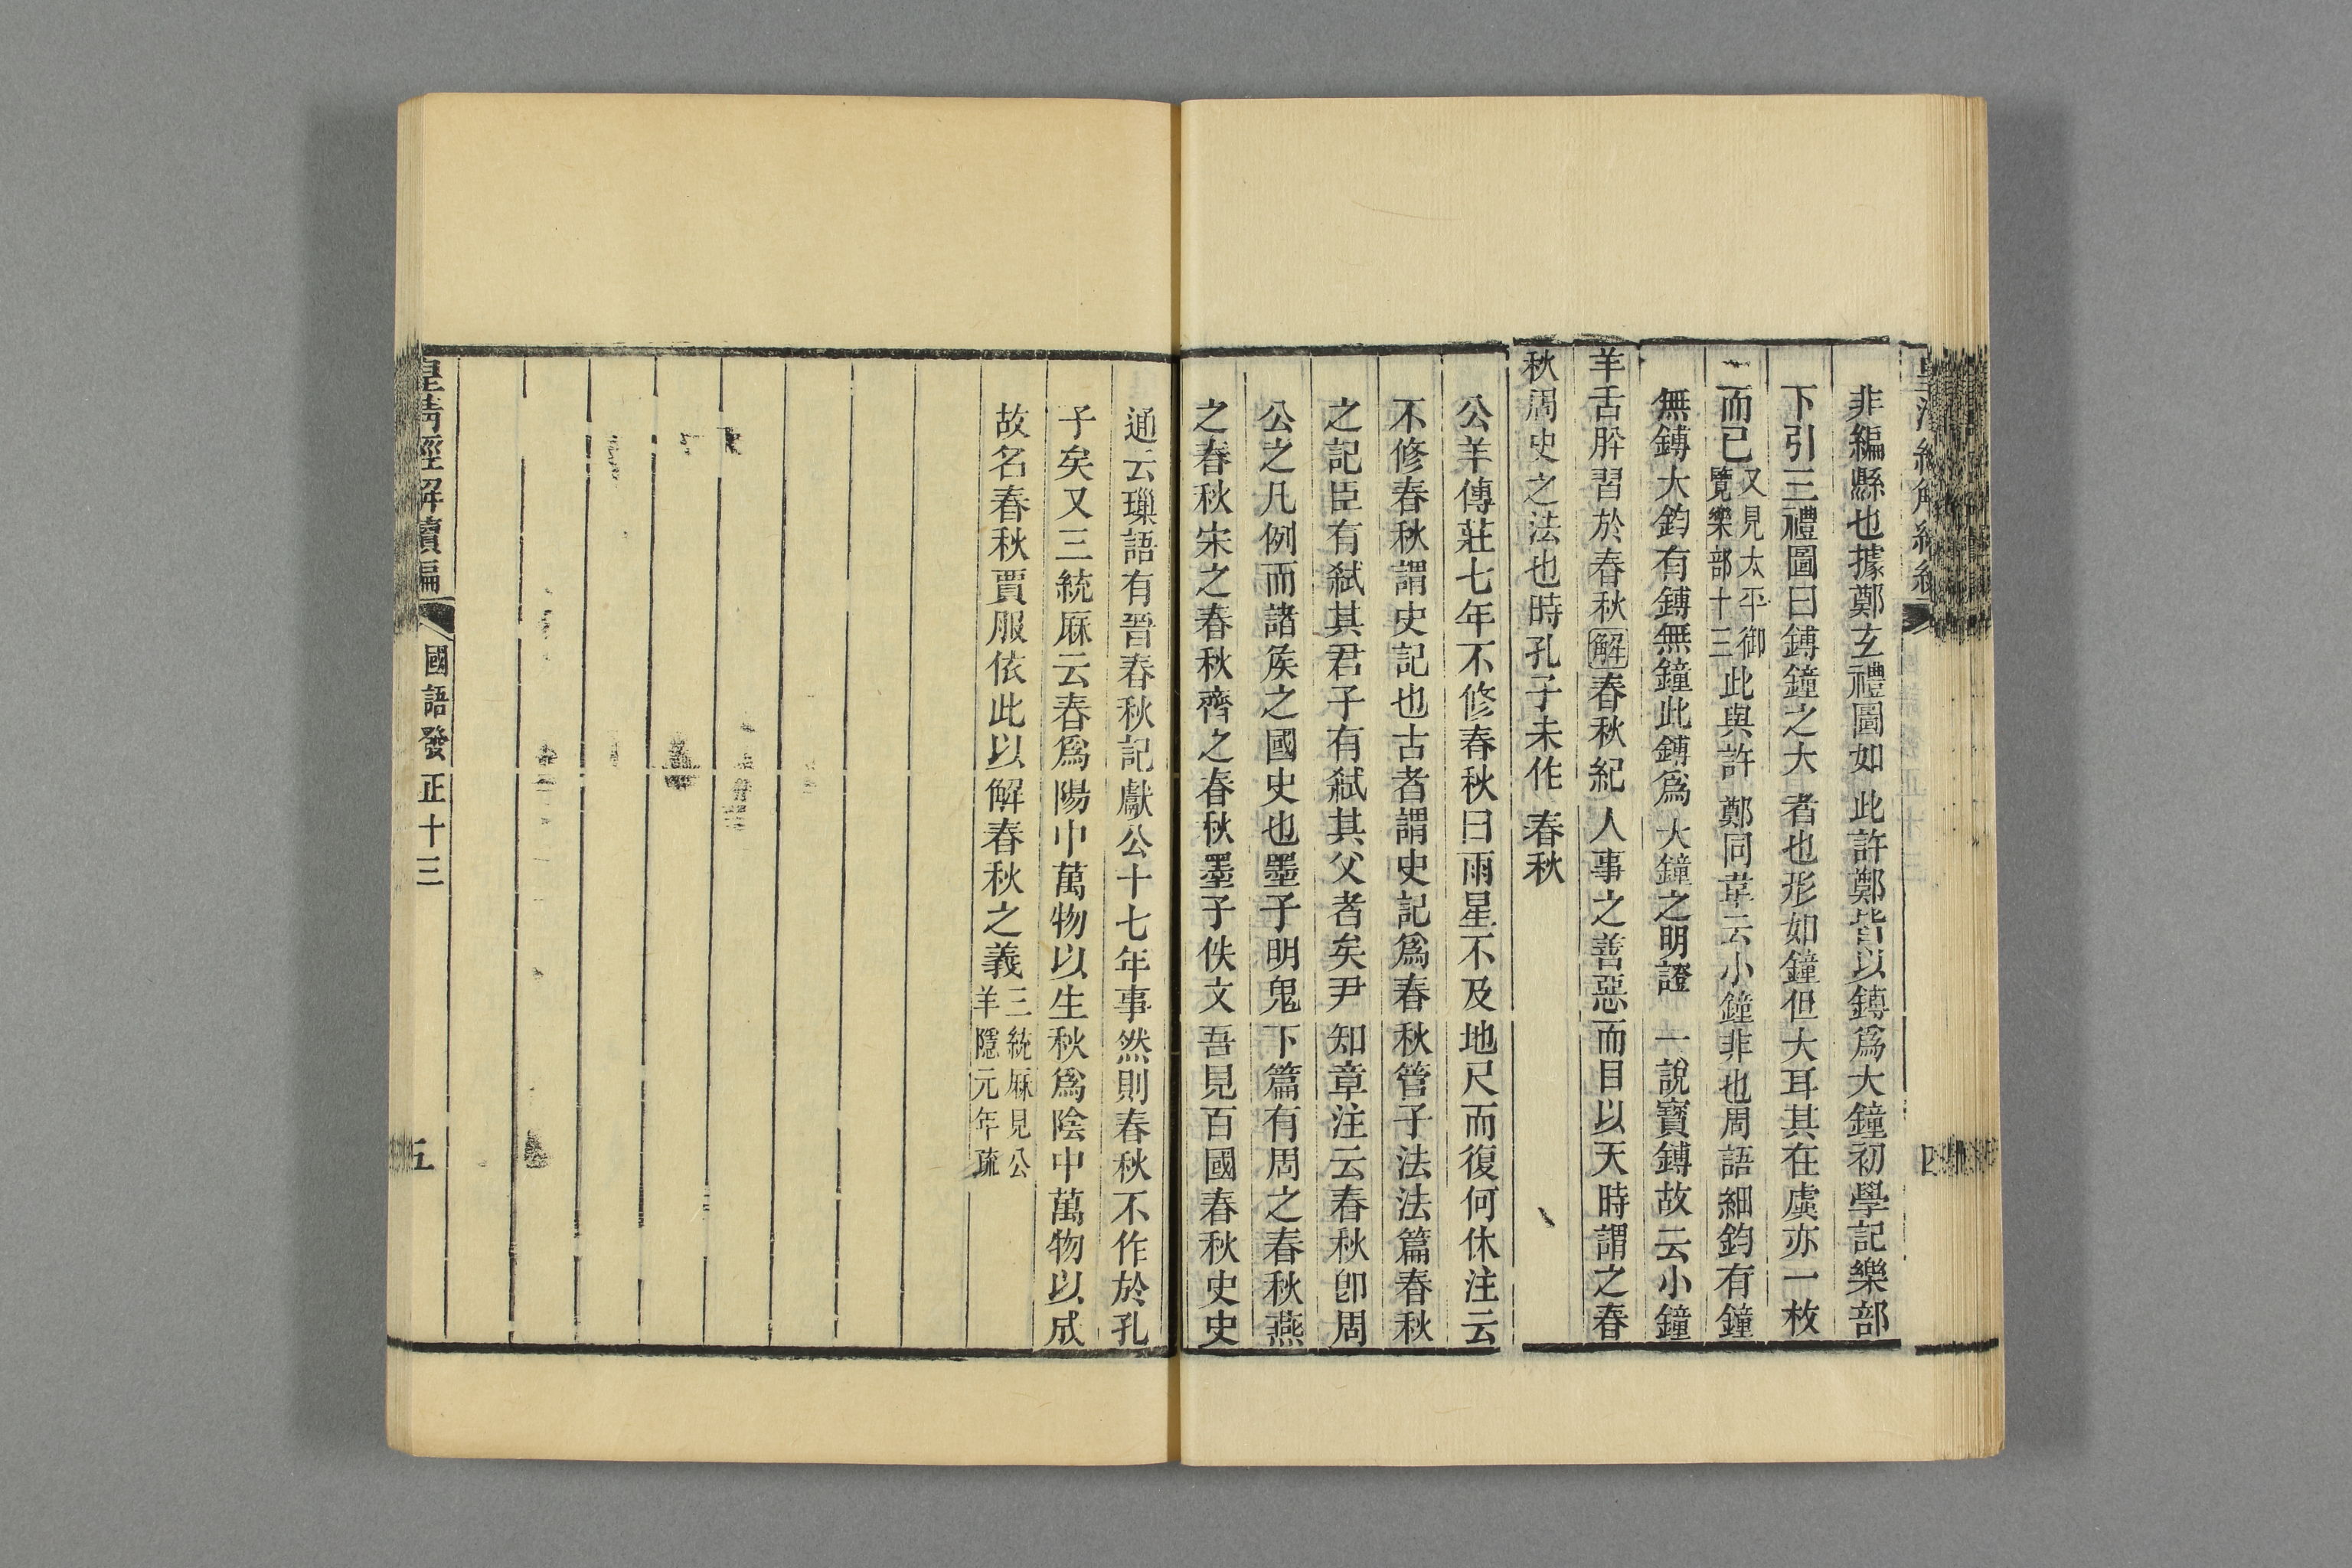 非編縣也據鄭玄禮圖如此許鄭皆以鎛爲大鐘初學記樂部
下引三禮圖曰鎛鐘之大者也形如鐘但大耳其在虡亦一枚
而已又見太平御覽樂部十三此與許鄭同韋云小鐘非也周語細鈞有鐘
無鎛大鈞有鎛無鐘此鎛爲大鐘之明證一說寶鎛故云小鐘
羊舌肸習於春秋解春秋紀人事之善惡而目以天時謂之春
秋周史之法也時孔子未作春秋
公羊傳莊七年不修春秋曰雨星不及地尺而復何休注云
不修春秋謂史記也古者謂史記爲春秋管子法法篇春秋
之記臣有弑其君子有弑其父者矣尹知章注云春秋卽周
公之凡例而諸矦之國史也墨子明鬼下篇有周之春秋燕
之春秋宋之春秋齊之春秋墨子佚文吾見百國春秋史史
通云璅語有晉春秋記獻公十七年事然則春秋不作於孔
子矣又三統厤云春爲陽中萬物以生秋爲陰中萬物以成
故名春秋賈服依此以解春秋之義三統厤見公羊隱元年疏
皇清經解續編
國語發正十三
五